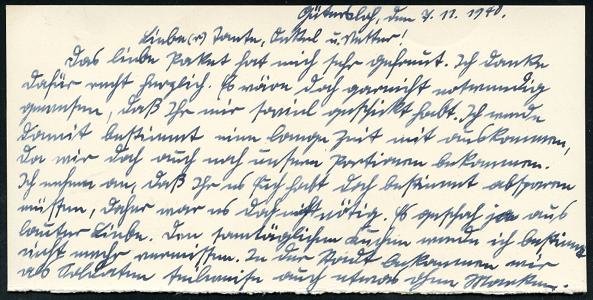 Gütersloh, den 7.11.1940.
Liebe(r) Tante, Onkel u. Vetter!
Das liebe Paket hat mich sehr gefreut. Ich danke
dafür recht herzlich. Es wäre doch garnicht notwendig
gewesen, daß Ihr mir soviel geschickt habt. Ich werde
damit bestimmt eine lange Zeit mit auskommen,
da wir doch auch noch unsere Portionen bekommen.
Ich nehme an, daß Ihr es Euch habt doch bestimmt absparen
müssen, daher war es doch nicht nötig. Es geschah ja aus
lauter Liebe. Den sonntäglichen Kuchen werde ich bestimmt
nicht mehr vermissen. In der Stadt bekommen wir
als Soldaten teilweise auch etwas ohne Marken.